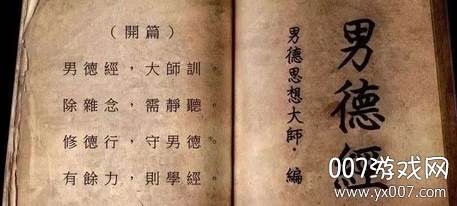 （開篇）
男德經，大師訓。
除雜念，需靜聽。
修德行，守男德。
有餘力，則學經。
男德經
男德思想大師·編
007游戏网
www.yx007.com